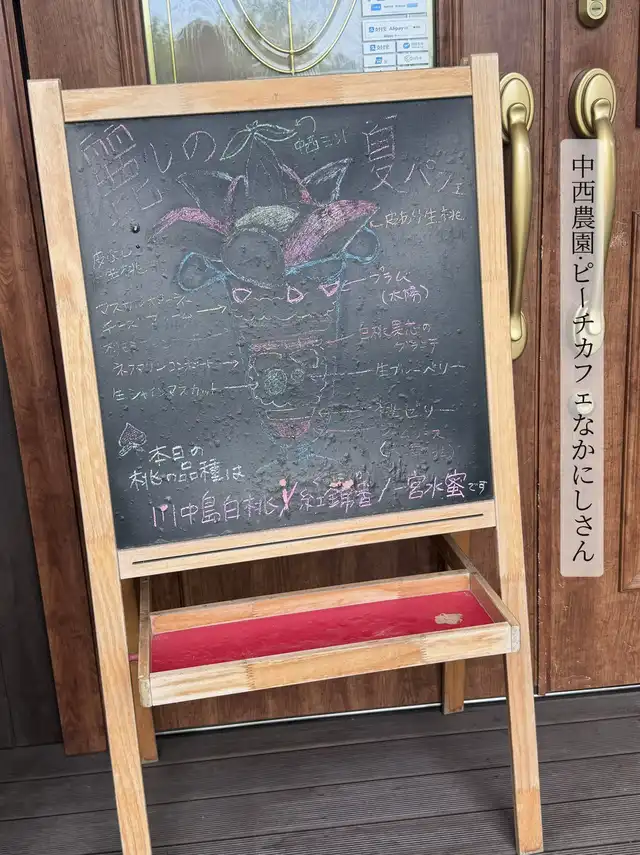 麗しの
夏パフェ
中西ミント
皮あり生桃
皮なし
生桃
プラム
(太陽)
マスカルポーネ
チーズクリーム
白桃果芯の
グラニテ
ネクタリンコンポート
生ブルーベリー
生シャインマスカット
桃ゼリー
本日の
桃の品種は
川中島白桃/紅錦香/一宮水蜜です
中西農園・ピーチカフェなかにしさん